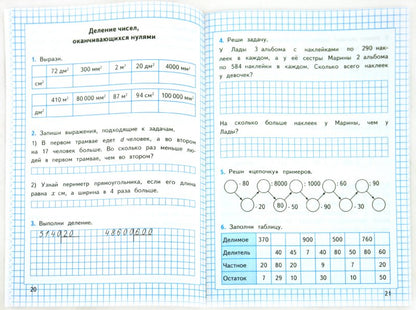 Деление чисел,
оканчивающихся нулями
1. Вырази.
72 дм² 300 мм² 2 м² 20 дм² 4000 мм²
см²
410 м² 80 000 мм² 87 м² 94 см² 100 000 мм²
дм²
2. Запиши выражения, подходящие к задачам.
1) В первом трамвае едет d человек, а во втором
на 17 человек больше. Во сколько раз меньше лю-
дей в первом трамвае, чем во втором?
2) Узнай периметр прямоугольника, если его длина
равна x см, а ширина в 4 раза больше.
3. Выполни деление.
48600 600
20
4. Реши задачу.
У Лады 3 альбома с наклейками по 290 нак-
леек в каждом, а у её сестры Марины 2 альбома
по 584 наклейки в каждом. Сколько всего наклеек
у девочек?
На сколько больше наклеек у Марины, чем у
Лады?
5. Реши «цепочку» примеров.
80 : 8000 : 1000 : 60 : 90
20 80 50 40 30
6. Заполни таблицу.
Делимое 370 900 500 760
Делитель 40 45 7 40 50 80 90
Частное 20 80 20 9 7 20
Остаток 7 29 10 80 30 10 50
21